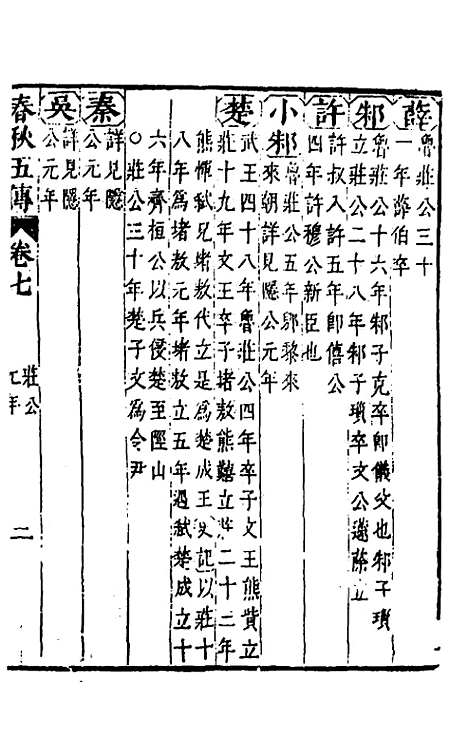 薛魯莊公三十
一年薛伯卒
邾魯莊公十六年邾子克卒卽儀父也邾子瑣
立莊公二十八年邾子瑣卒文公蘧蒢立
許許叔入許五年卽僖公
四年許穆公新臣也
小邾魯莊公五年郳黎來
來朝詳見隱公元年
楚武王四十八年魯莊公四年卒子文王熊貲立
莊十九年文王卒子堵敖熊囏立莊二十二年
熊惲弒兄堵敖代立是爲楚成王史記以莊十
八年爲堵敖元年堵敖立五年遇弒楚成立十
六年齊桓公以兵侵楚至陘山
○莊公三十年楚子文爲令尹
秦詳見隱
公元年
吳詳見隱
公元年
春秋五傳 卷七 莊公 元年 二